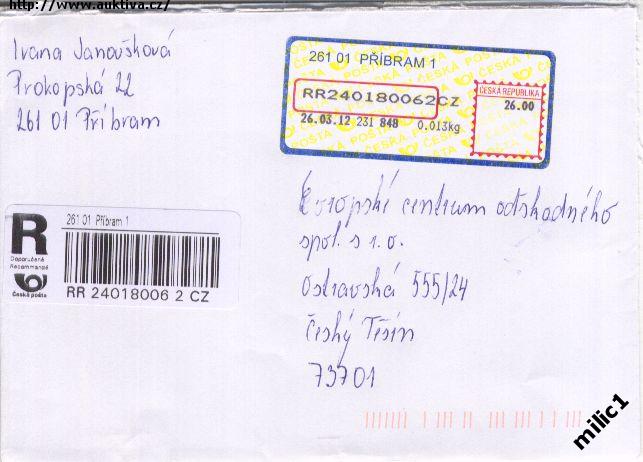 http://www.auktiva.cz/
Ivana Janoušková
Prokopská 22
261 01 Příbram
261 01 PŘÍBRAM 1
RR240180062CZ
26.03.12 231 848 0,013kg
ČESKÁ REPUBLIKA
26.00
R
Doporučeně
Recommandé
Česká pošta
261 01 Příbram 1
RR 24018006 2 CZ
Evropské centrum odškodného
spol. s r.o.
Ostravská 555/24
Český Těšín
73701
milic1